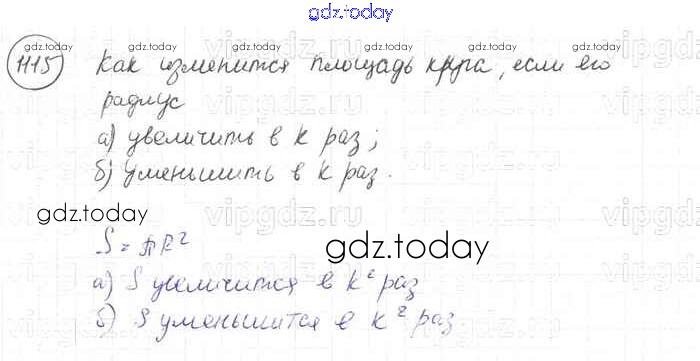 gdz.today
1115 Как изменится площадь круга, если его
радиус
а) увеличить в k раз;
б) уменьшить в k раз.
S = πR²
а) S увеличится в k² раз
б) S уменьшится в k² раз
gdz.today gdz.today gdz.today gdz.today
vipgdz.ru vipgdz.ru vipgdz.ru
gdz.today
gdz.today